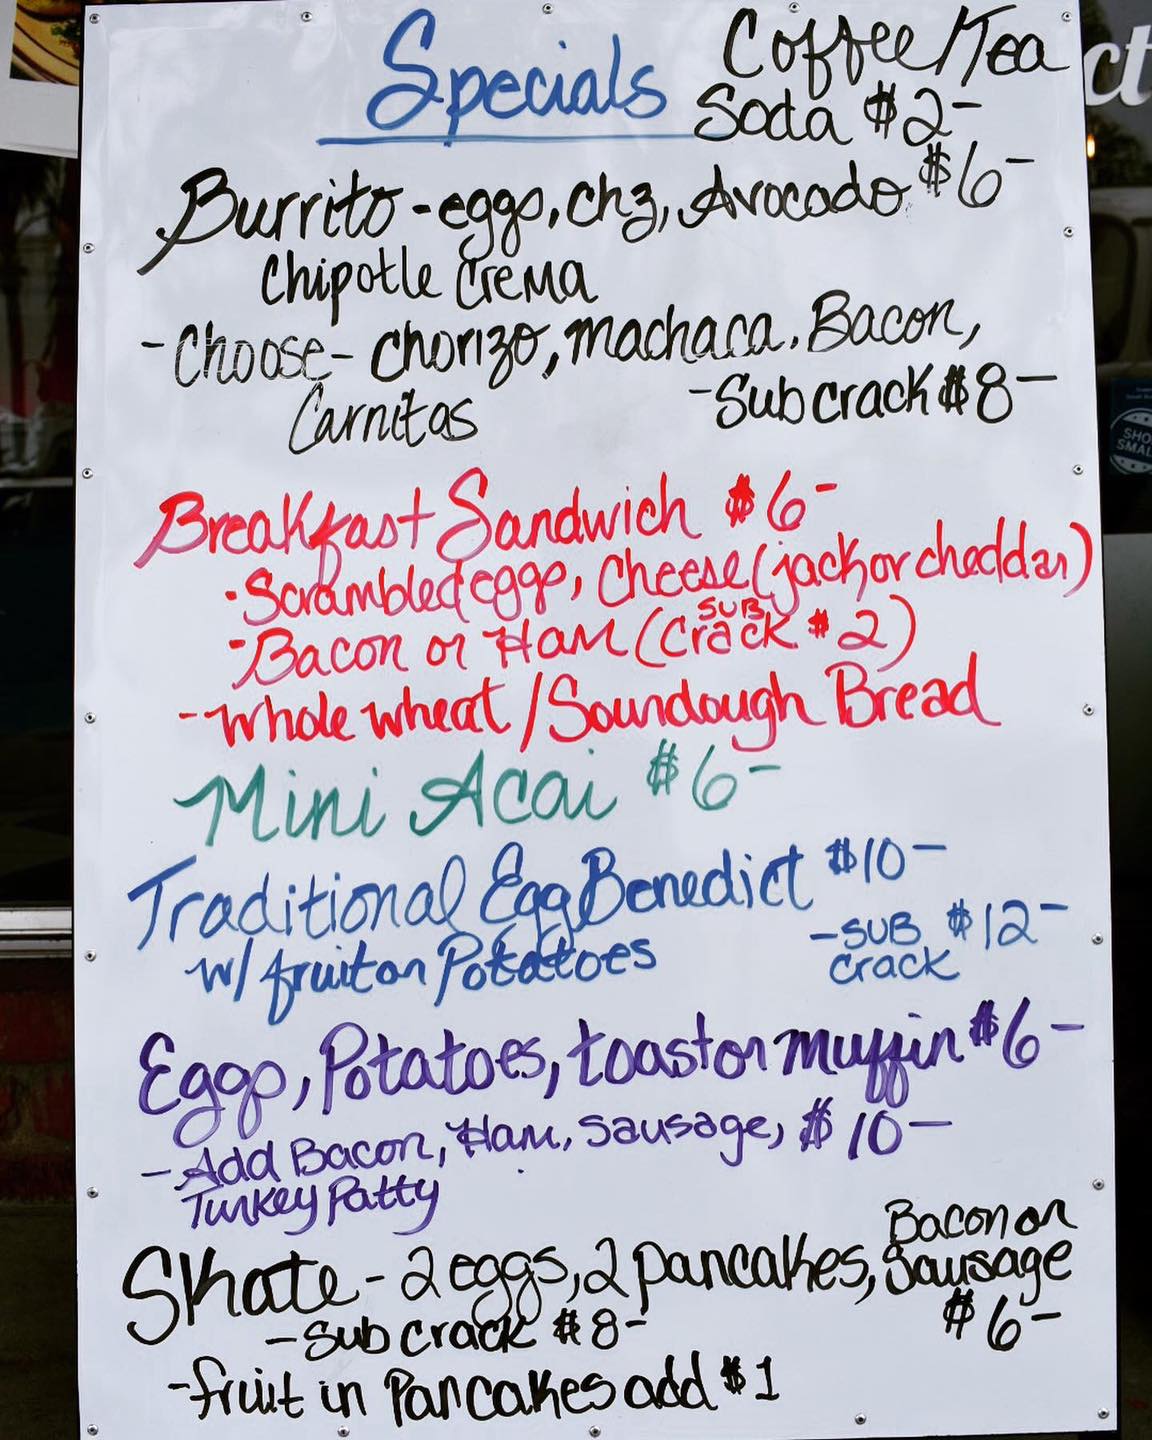 Specials
Coffee/Tea
Soda $2-
Burrito - eggs, chz, Avocado $6-
Chipotle Crema
- Choose - Chorizo, machaca, Bacon,
Carnitas
- Sub crack $8-
Breakfast Sandwich $6-
· Scrambled eggs, Cheese (jack or cheddar)
- Bacon or Ham (Sub Crack $2)
- Whole wheat / Sourdough Bread
Mini Acai $6-
Traditional Egg Benedict $10-
w/ fruit or Potatoes
- SUB $12-
crack
Eggs, Potatoes, toast or muffin $6-
- Add Bacon, Ham, Sausage, $10-
Turkey Patty
Bacon or
Skate - 2 eggs, 2 pancakes, Sausage
$6-
- Sub crack $8-
- fruit in Pancakes add $1
ct
SHO
SMAL